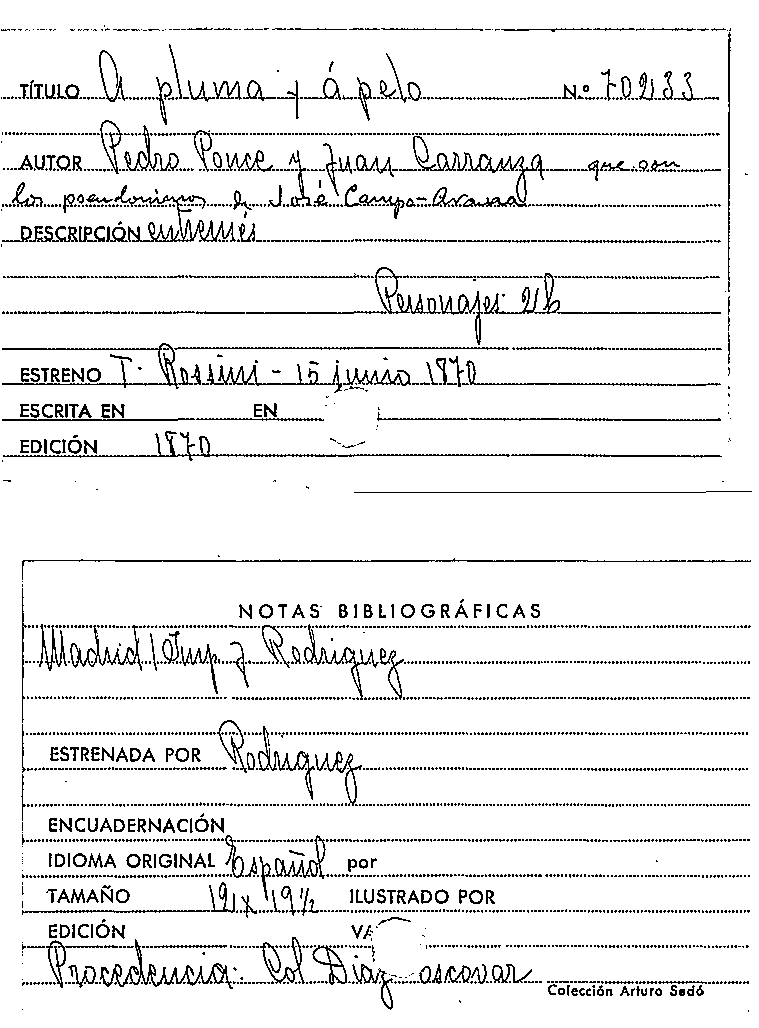 TÍTULO A pluma y á pelo N.º 70233
AUTOR Pedro Ponce y Juan Carranza que son
los pseudonimos de José Campo-Arana
DESCRIPCIÓN entremés
Personajes 2h
ESTRENO T. Rossini - 15 junio 1870
ESCRITA EN EN
EDICIÓN 1870
NOTAS BIBLIOGRÁFICAS
Madrid / Imp J Rodriguez
ESTRENADA POR Rodriguez
ENCUADERNACIÓN
IDIOMA ORIGINAL Español por
TAMAÑO 19½ ILUSTRADO POR
EDICIÓN
Procedencia: Col Diaz ascovar
Colección Arturo Sedó